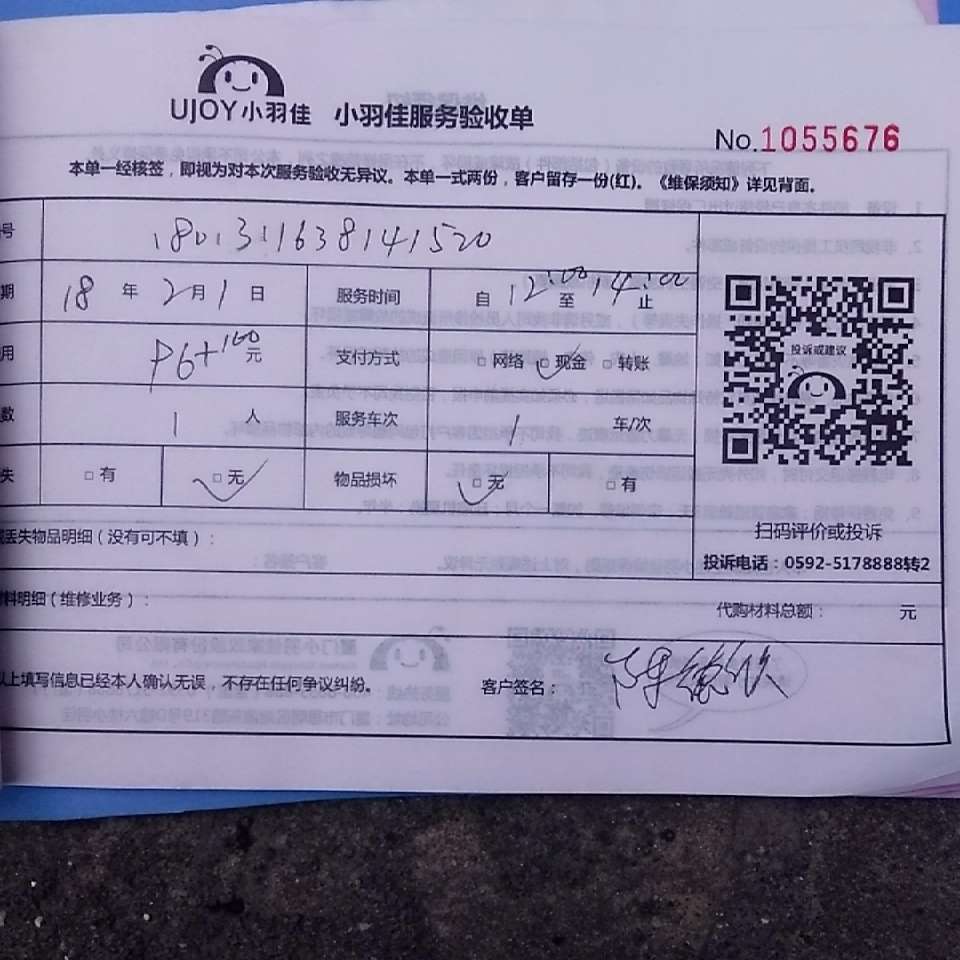 UJOY小羽佳 小羽佳服务验收单
No.1055676
本单一经核签，即视为对本次服务验收无异议。本单一式两份，客户留存一份(红)。《维保须知》详见背面。
号 1801311638141520
期 18 年 2 月 1 日 服务时间 自 12:00 至 14:00 止
用 P6+100 元 支付方式 □ 网络 □ 现金 □ 转账
投诉或建议
数 1 人 服务车次 1 车/次
失 □ 有 □ 无 物品损坏 □ 无 □ 有
扫码评价或投诉
丢失物品明细（没有可不填）：
投诉电话：0592-5178888转2
料明细（维修业务）： 代购材料总额： 元
以上填写信息已经本人确认无误，不存在任何争议纠纷。 客户签名：